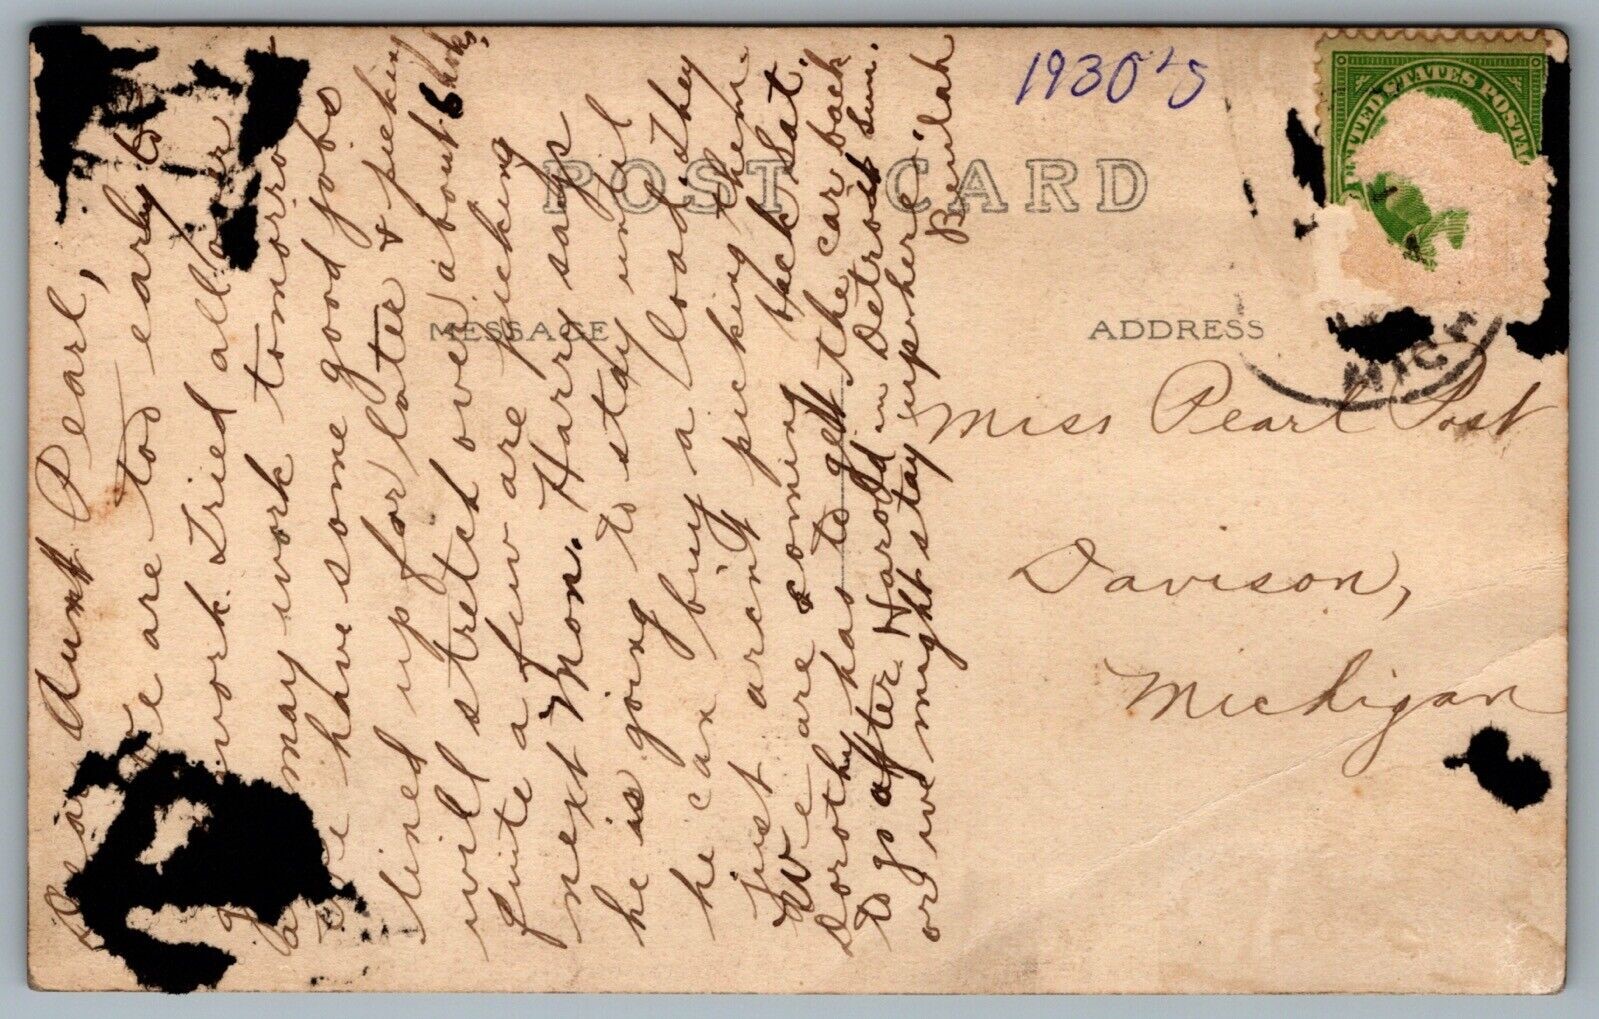 1930's
POST CARD
MESSAGE
ADDRESS
UNITED STATES POSTA
MICH
Aunt Pearl,
We are too early to
work. Tried all over
may work tomorrow
have some good jobs
lined up for later & picking
will stretch over about 6 weeks,
quite a few are picking
next Mon. Harry says
he is going to stay until
he can buy a load. They
just aren't picking them.
We are coming back Sat.
Dorothy has to get the car back
to go after Harold in Detroit Sun.
or we might stay up here.
Beulah
Miss Pearl Post
Davison,
Michigan